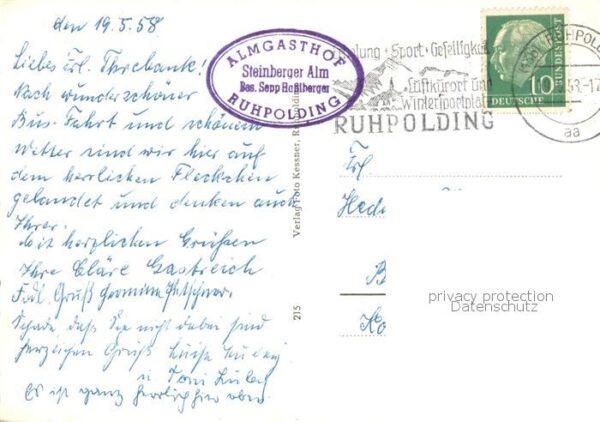 den 19.5.58
Liebes Frl. Threbank!
Nach wunderschöner
Bus-Fahrt und schönem
Wetter sind wir hier auf
dem herrlichen Fleckchen
gelandet und denken auch
Ihrer.
Mit herzlichen Grüßen
Ihre Cläre Gastreich
Frdl. Gruß
Schade, daß Sie nicht dabei sind
herzlichen Gruß Luise
u. Toni
Es ist ganz herrlich hier oben.
ALMGASTHOF
Steinberger Alm
Bes. Sepp Haßlberger
RUHPOLDING
Erholung · Sport · Geselligkeit
Luftkurort und
Wintersportplatz
RUHPOLDING
RUHPOLDING
aa
10
DEUTSCHE
BUNDESPOST
Verlag Foto Kessner, R
215
Frl
Hed
B
Ko
privacy protection
Datenschutz